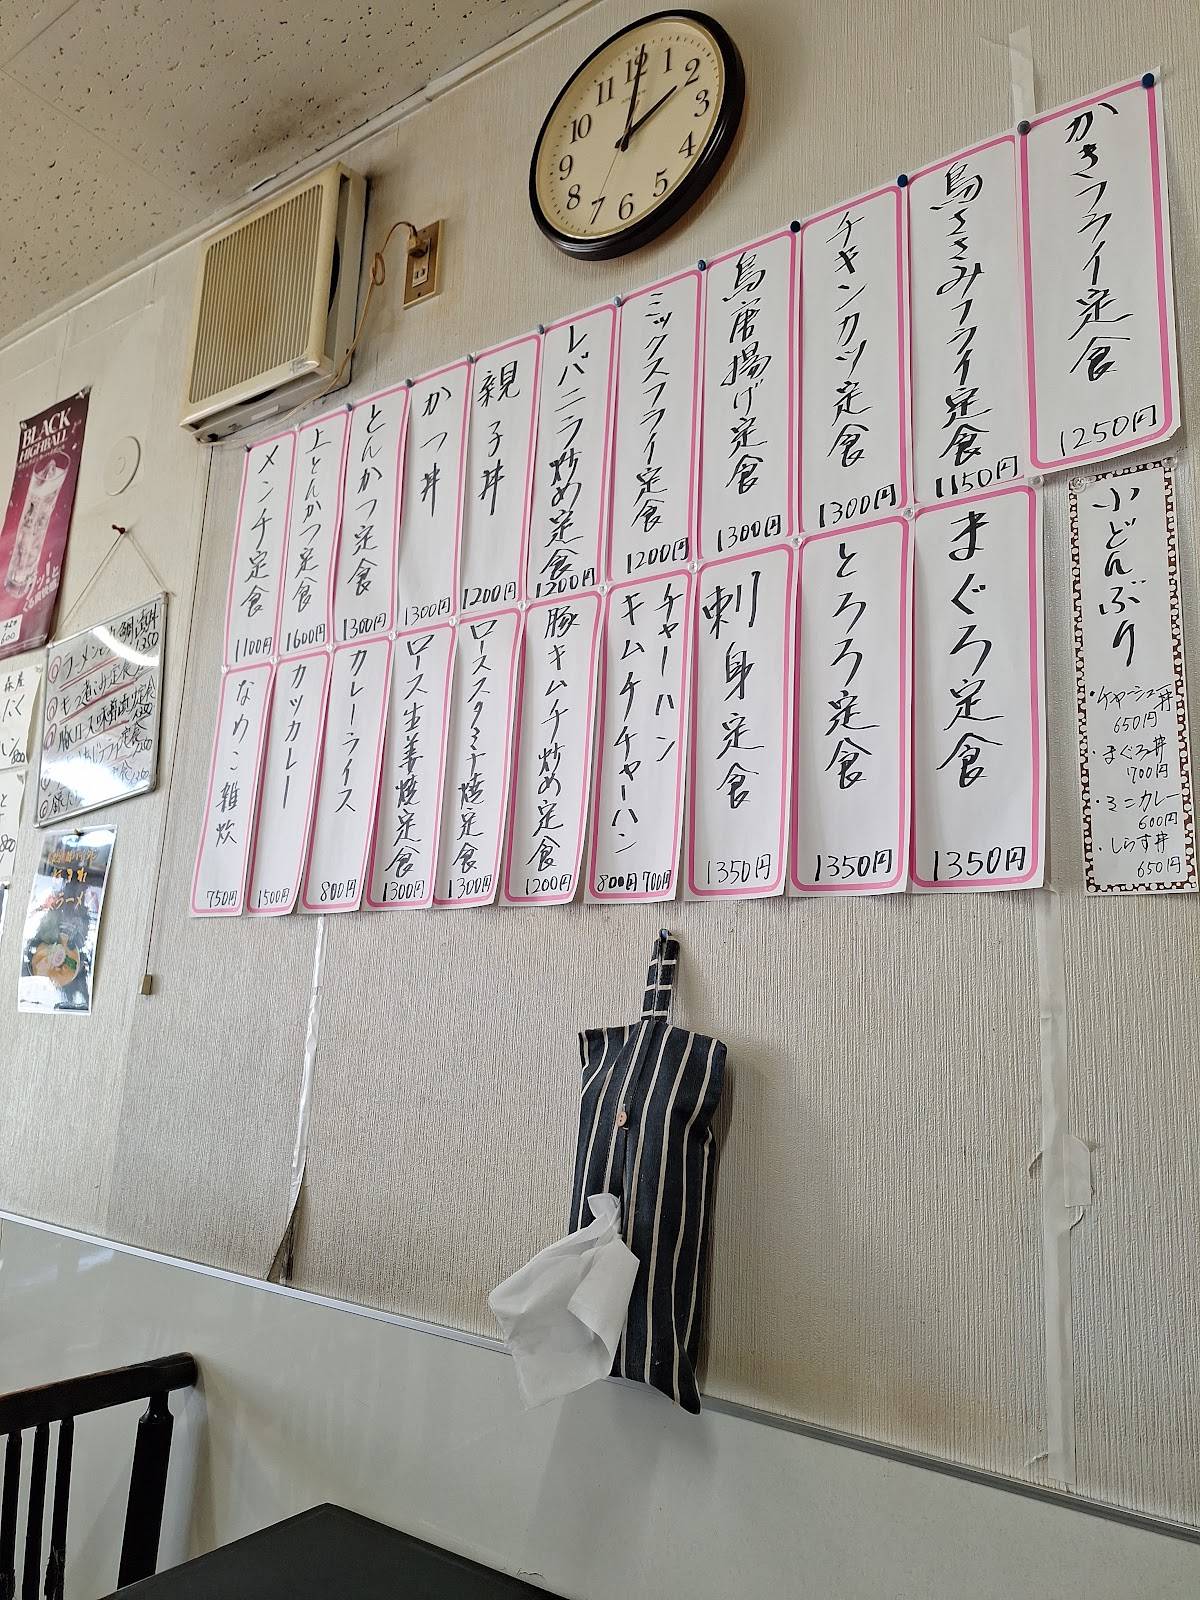 かきフライ定食
1250円
鳥ささみフライ定食
1150円
チキンカツ定食
1300円
鳥唐揚げ定食
1300円
ミックスフライ定食
1200円
レバニラ炒め定食
1200円
親子丼
1200円
かつ丼
1300円
とんかつ定食
1300円
上とんかつ定食
1600円
メンチ定食
1100円
まぐろ定食
1350円
とろろ定食
1350円
刺身定食
1350円
チャーハン
700円
キムチチャーハン
800円
豚キムチ炒め定食
1200円
ローススタミナ焼定食
1300円
ロース生姜焼定食
1300円
カレーライス
800円
カツカレー
1500円
なめこ雑炊
750円
小どんぶり
・チャーシュー丼
650円
・まぐろ丼
700円
・ミニカレー
600円
・しらす丼
650円
BLACK
HIGHBALL
12
1
2
3
4
5
6
7
8
9
10
11